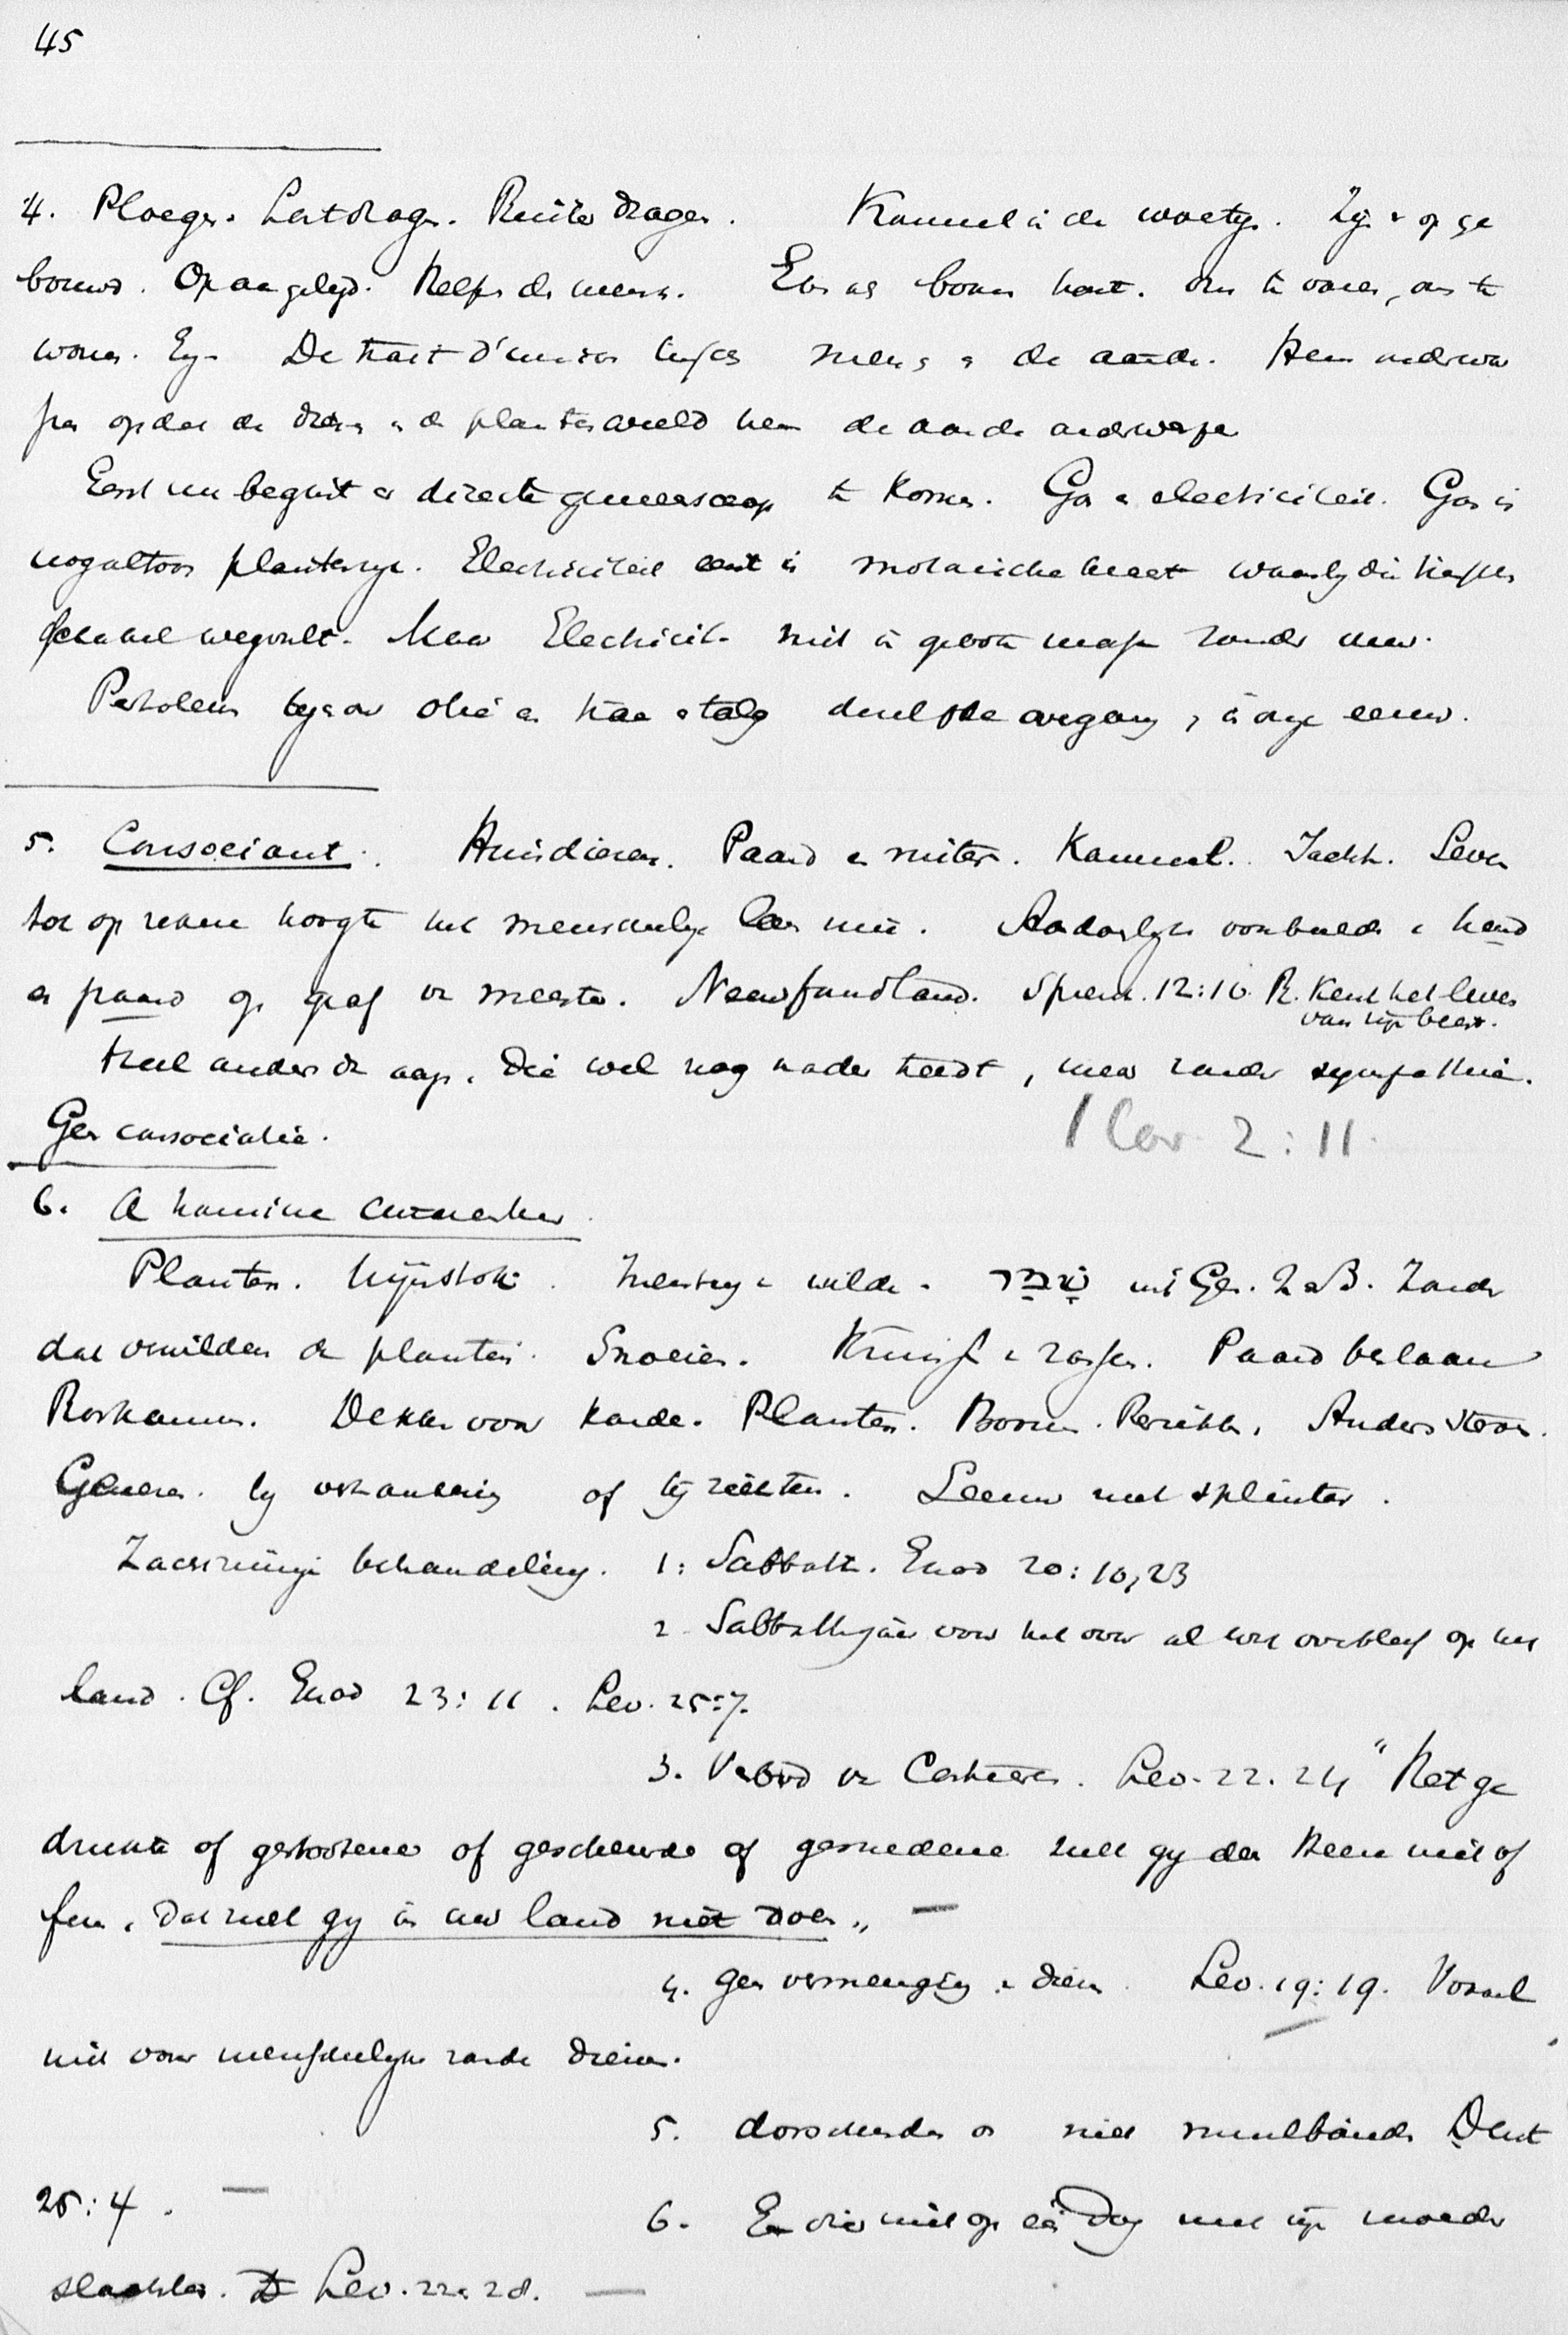 45
4. Ploegen. Lastdrager. Ruiter dragen. Kameel in de woestyn. Zyn er op ge
bouwd. Op aangelegd. Helper der mensch. Een als boven hout. Om te varen, om te
wonen. De trait d'union tusschen mensch en de aarde. Hem onderwor
pen opdat de dieren en de plantenwereld hem de aarde onderwerpe
Eerst nu begint er directe gemeenschap te komen. Gas en electriciteit. Gas is
nogaltoos plantenryk. Electriciteit eerst is
schakel wegvalt. Maar Electricit. niet in groote mate zonder
Petroleum olie en talg de overgang, in onze eeuw.
5. Consociant. Huisdieren. Paard en ruiter. Kameel. Jacht. Leven
tot op zekere hoogte het menschelyk leven mee. Aandoenlyke voorbeelden hond
en paard op graf v. meester. Newfundland. Spreuk. 12:10 R. Kent het leven
van zijn beest.
Heel anders de aap. Die wel nog nader treedt, maar zonder sympathie.
Geen consociatie. 1 Cor 2:11.
6. A homine
Planten. Wijnstok. wilde. שׁמר uit Gen. 2:15. Zonder
dat verwilderen de planten. Snoeien. Kruisen rassen. Paard beslaan
Roskammen. Dekken voor koude. Planten. Boomen. Perzikken. Anders
Genezen by verwonding of by ziekten. Leeuw met splinter.
Zachtzinnige behandeling. 1: Sabbath. Exod 20:10, 23
2. Sabbathjaar voor het over al wat overbleef op het
land. Cf. Exod 23:11. Lev. 25:7.
3. Verbod v. Castreeren. Lev. 22. 24 "Het ge
drukte of gestootene of gescheurde of gesnedene zult gy den Heere niet of
feren, dat zult gy in uw land niet doen" —
4. Geen vermenging v. dieren. Lev. 19:19. Vooral
niet voor menschelyke zonde dieren.
5. dorschenden os niet muulbanden Deut
25:4. —
6. Een dier niet op één dag met zijn moeder
slachten. Lev. 22:28. —